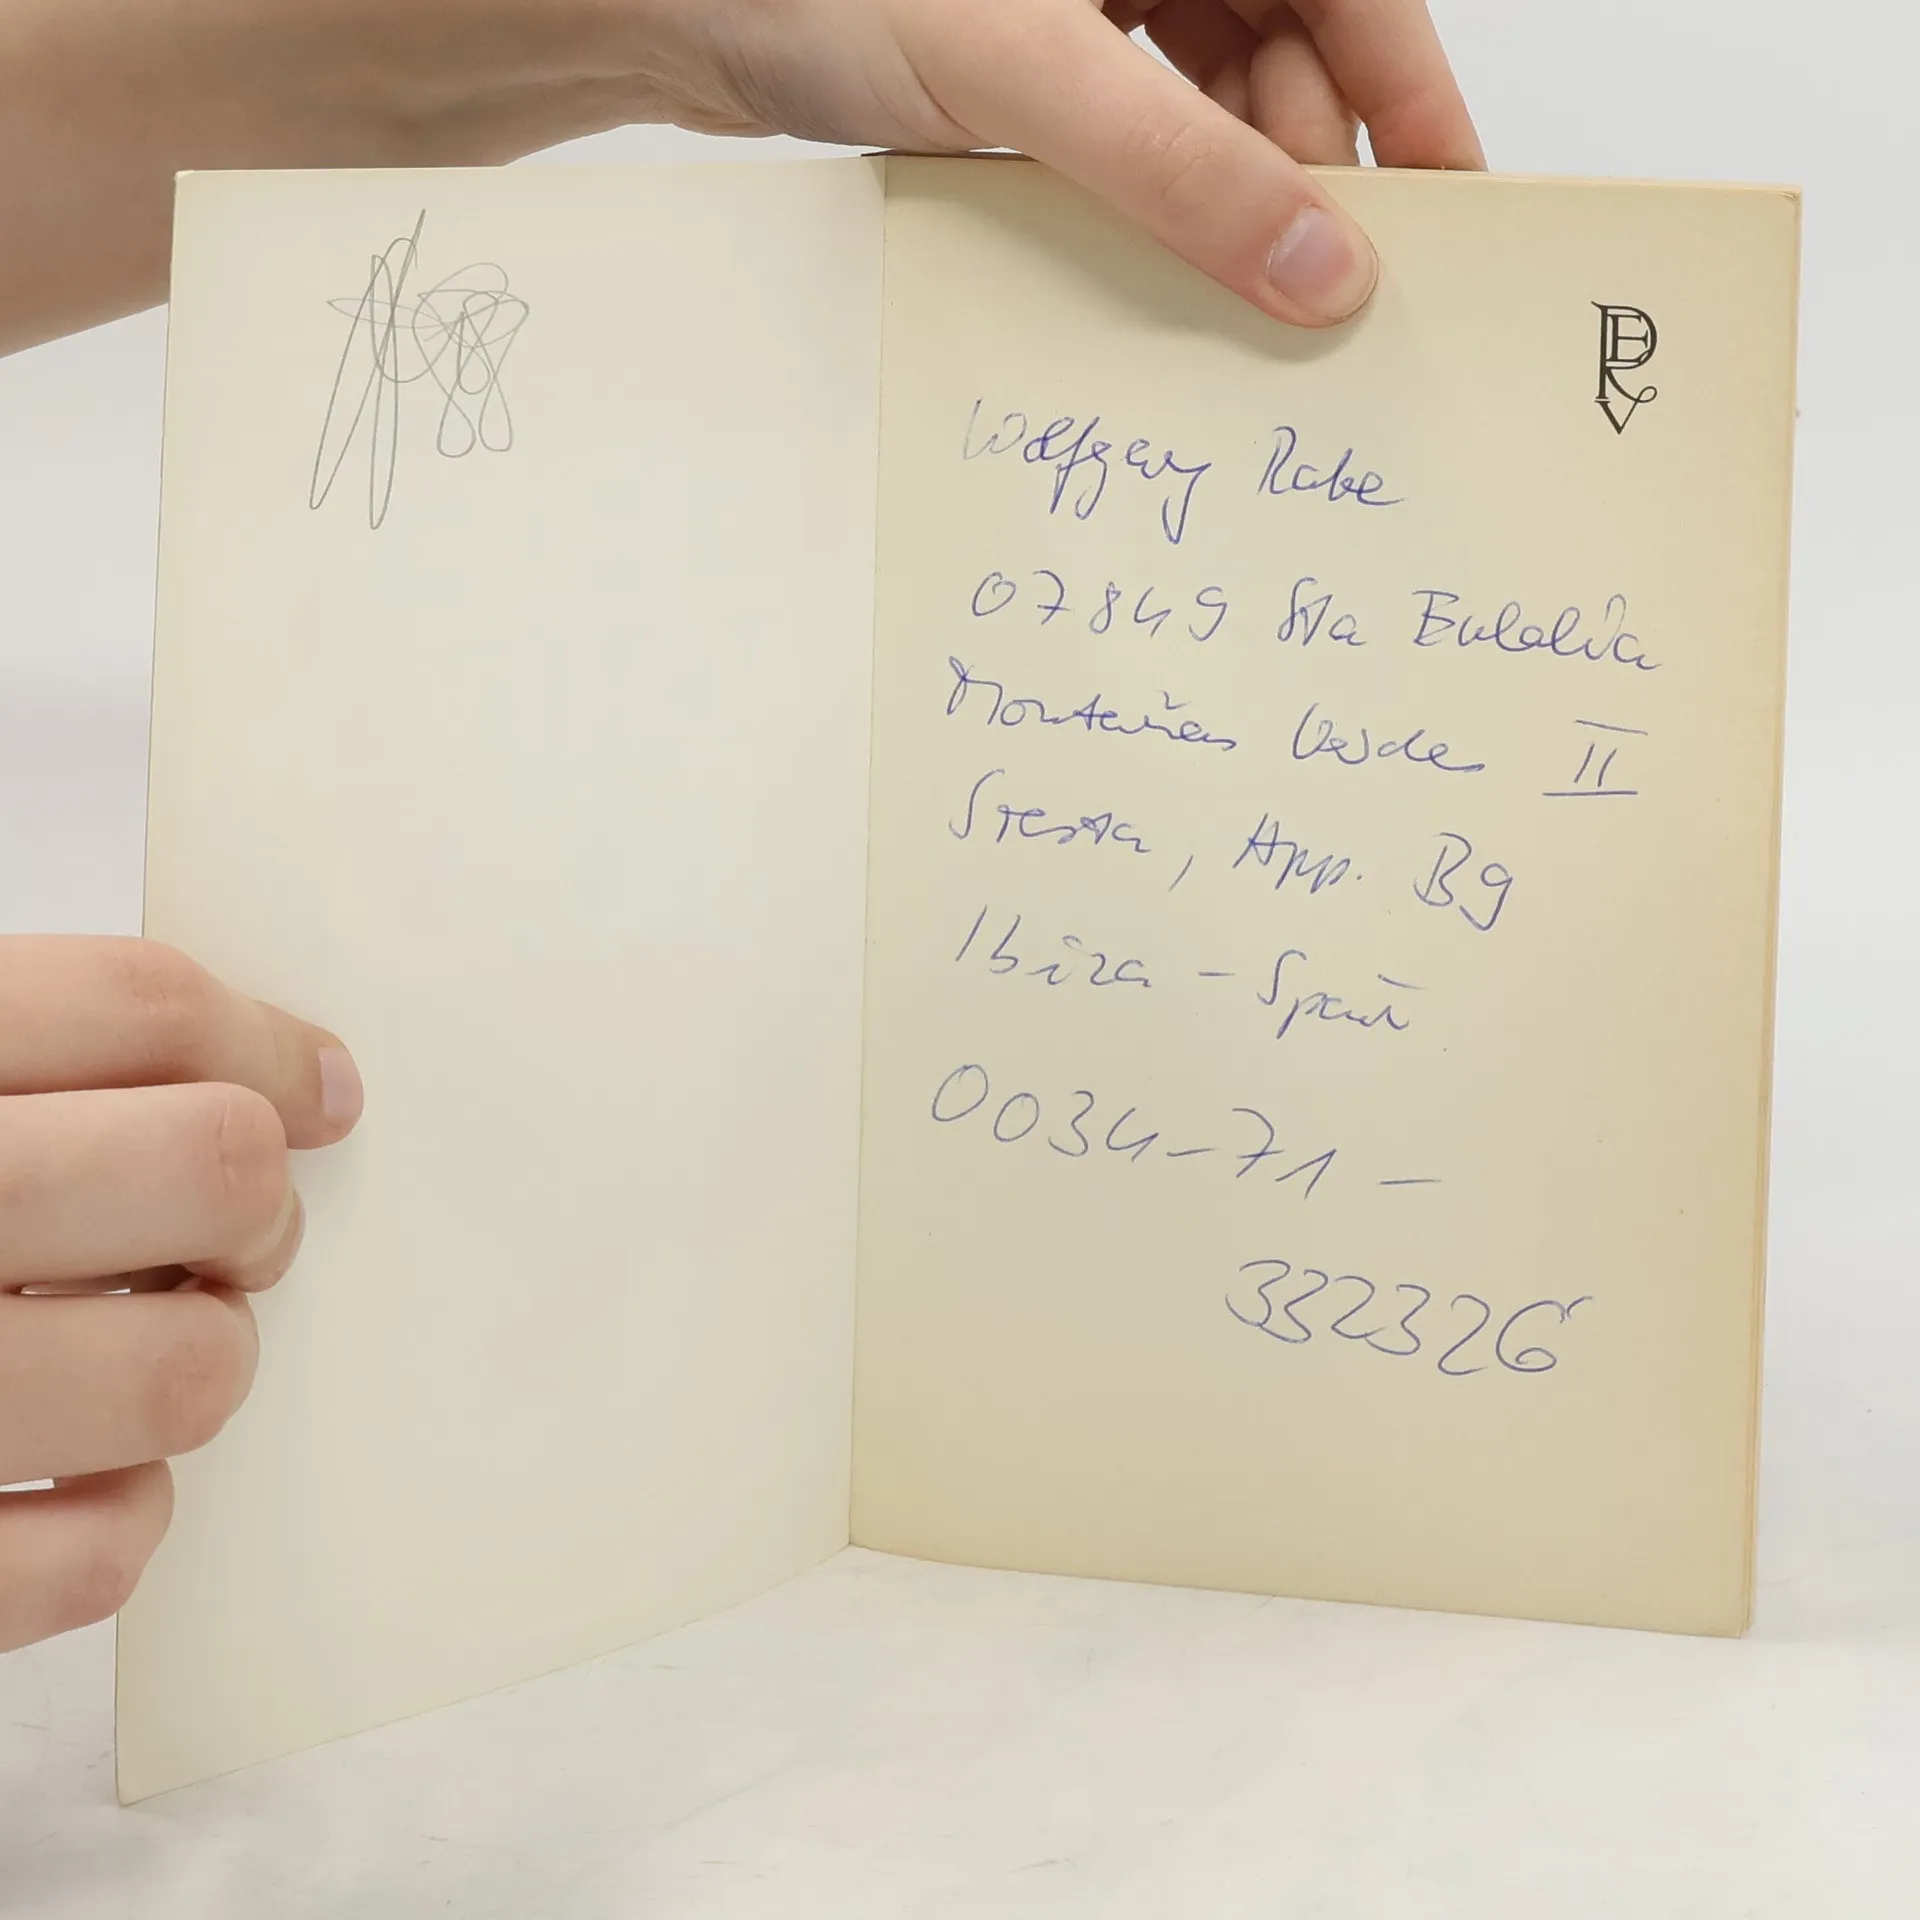 Wolfgang Rabe
07849 Sta Eulalia
Montañas Verdes II
Siesta, App. B9
Ibiza - Spain
0034-71-
332326